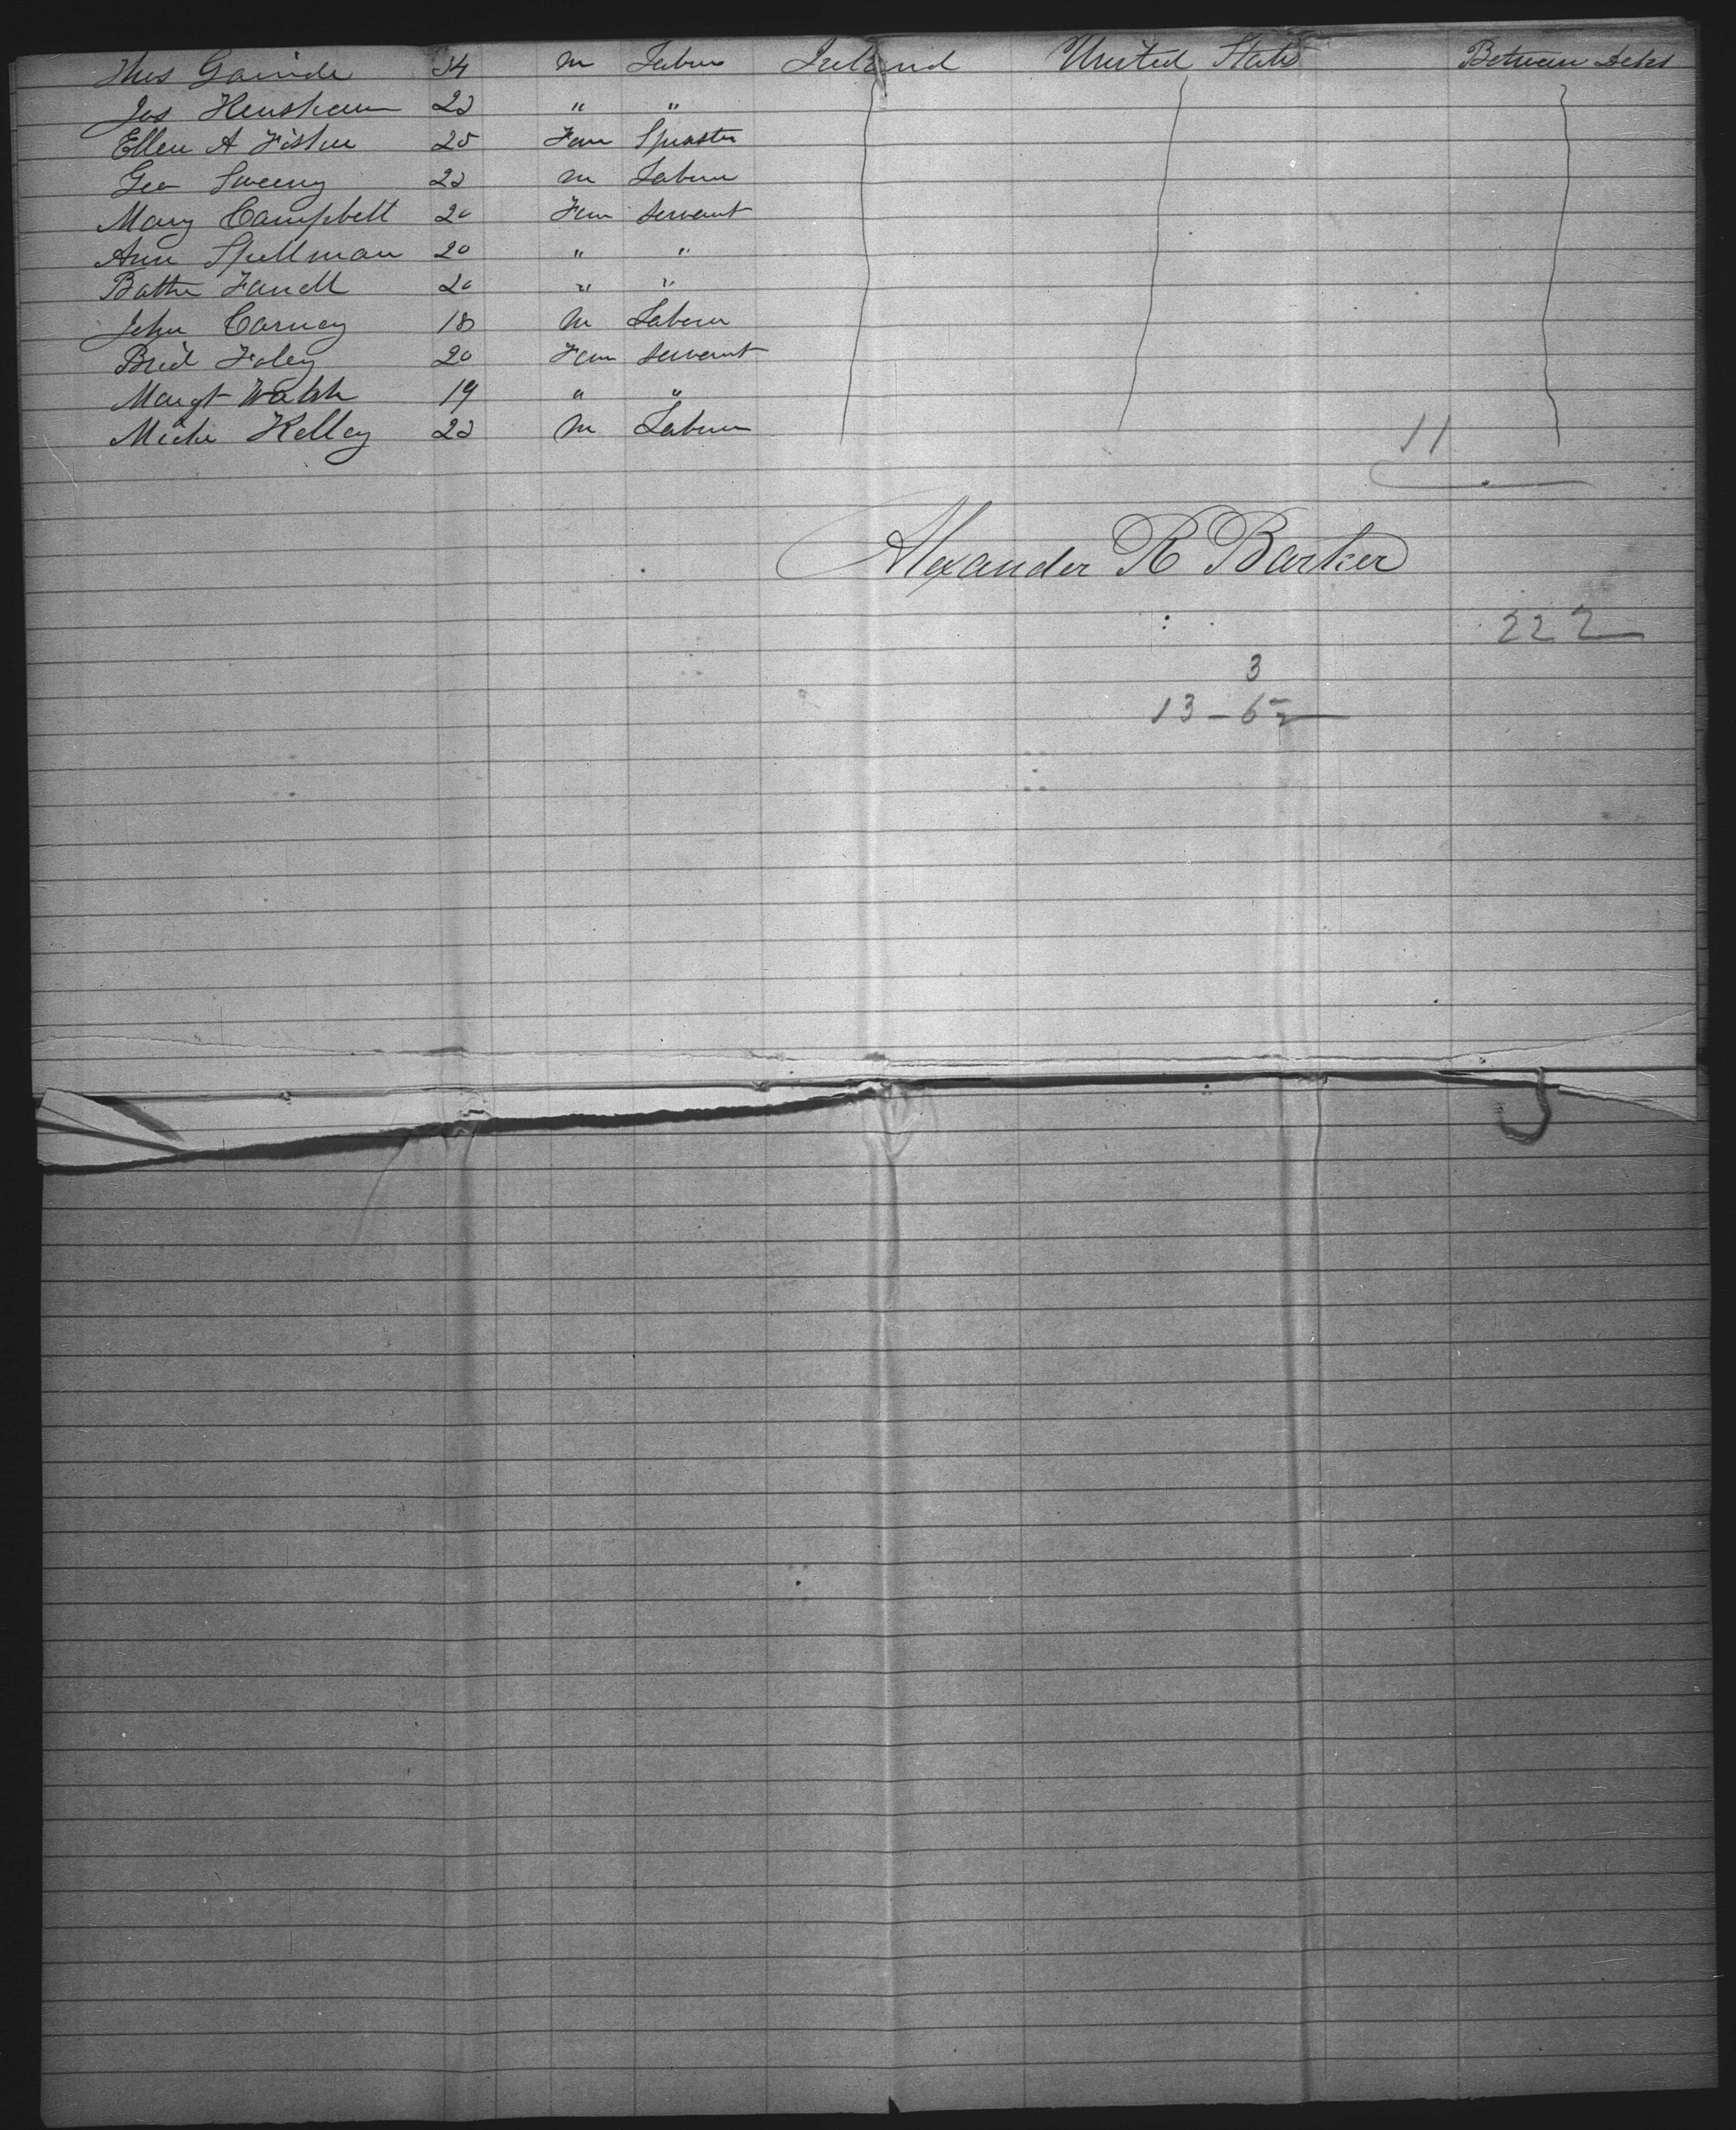 Thos 34 m Labour Ireland United States Between Decks
Jas Henshaw 22 " "
Ellen A Fisher 25 Fem Spinster
Geo Sweeny 22 m Labour
Mary Campbell 20 Fem Servant
Ann Spellman 20 " "
Farrell 20 " "
John Carney 18 M Labour
Brid Foley 20 Fem Servant
Margt Walsh 19 " "
Kelley 22 M Labour
11
Alexander R Barker
222
3
13 - 65